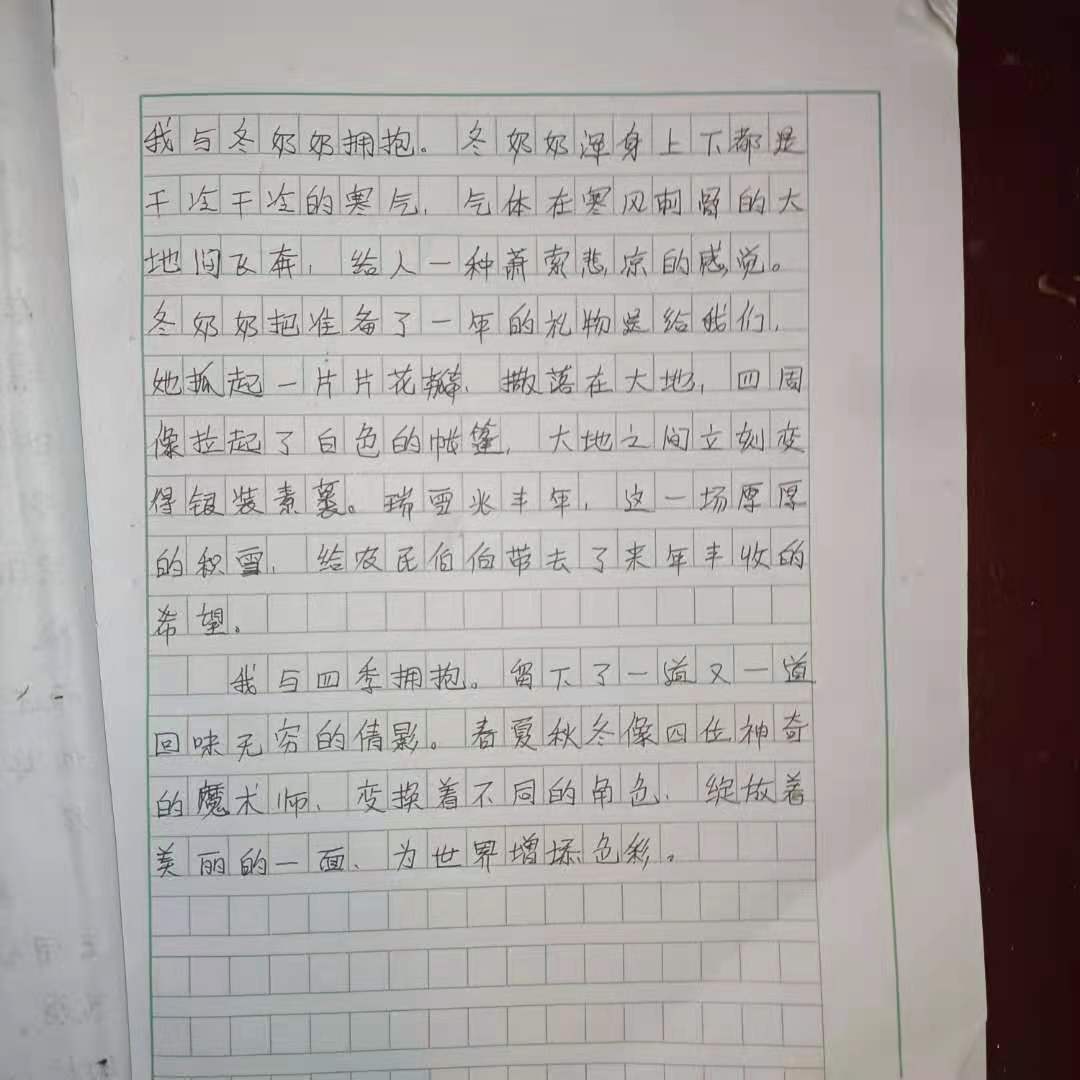 我与冬奶奶拥抱。冬奶奶浑身上下都是
干冷干冷的寒气,气体在寒风刺骨的大
地间飞奔,给人一种萧索悲凉的感觉。
冬奶奶把准备了一年的礼物是给我们,
她抓起一片片花瓣,撒落在大地,四周
像拉起了白色的帐篷,大地之间立刻变
得银装素裹。瑞雪兆丰年,这一场厚厚
的积雪,给农民伯伯带去了来年丰收的
希望。
我与四季拥抱。留下了一道又一道
回味无穷的倩影。春夏秋冬像四位神奇
的魔术师,变换着不同的角色,绽放着
美丽的一面、为世界增添色彩。